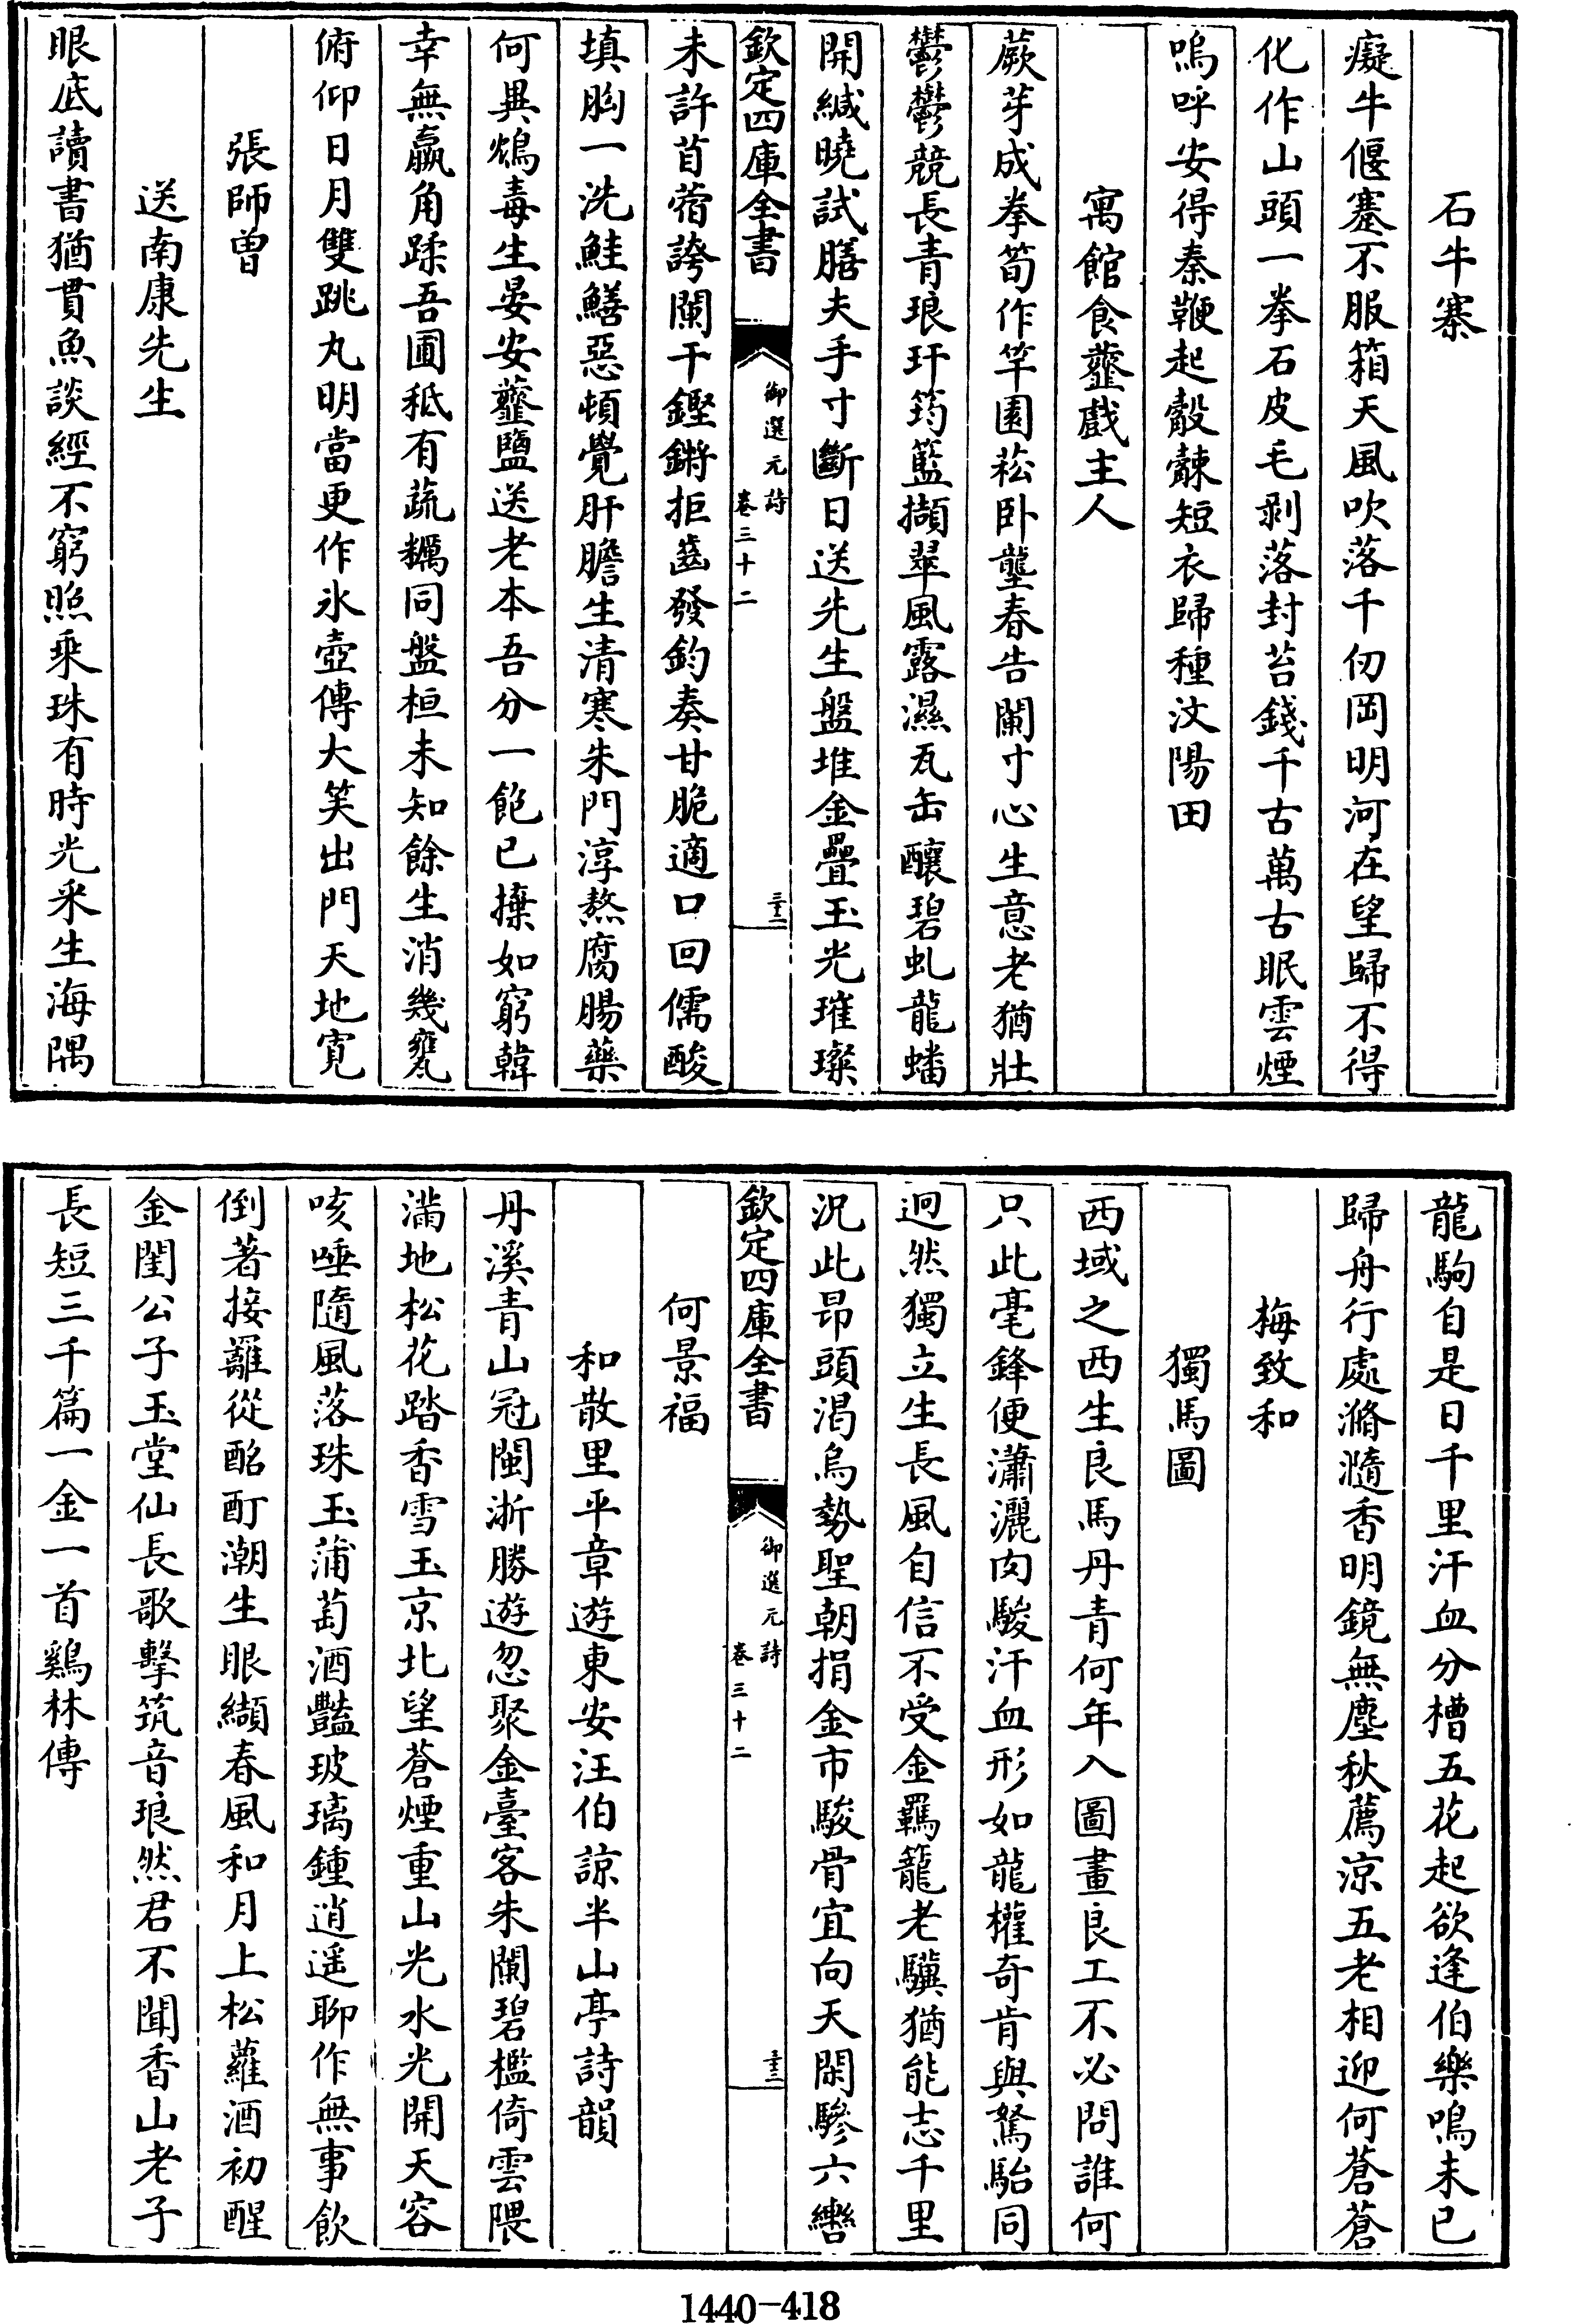 石牛寨
癡牛偃蹇不服箱天風吹落千仞岡明河在望歸不得
化作山頭一拳石皮毛剥落封苔錢千古萬古眠雲煙
嗚呼安得秦鞭起觳觫短衣歸種汶陽田
寓館食虀戲主人
蕨芽成拳筍作竿園菘卧壟春告闌寸心生意老猶壯
鬱鬱競長青琅玕筠籃擷翠風露濕瓦缶釀碧虬龍蟠
開緘曉試膳夫手寸斷日送先生盤堆金疊玉光璀璨
欽定四庫全書
御選元詩
卷三十二
三十二
未許苜蓿誇闌干鏗鏘拒齒發鈞奏甘脆適口回儒酸
填胸一洗鮭鱔惡頓覺肝膽生清寒朱門淳熬腐腸藥
何異鴆毒生晏安虀鹽送老本吾分一飽已擬如窮韓
幸無羸角蹂吾圃秪有蔬糲同盤桓未知餘生消幾甕
俯仰日月雙跳丸明當更作氷壺傳大笑出門天地寛
張師曾
送南康先生
眼底讀書猶貫魚談經不窮照乘珠有時光采生海隅
龍駒自是日千里汗血分槽五花起欲逢伯樂鳴未已
歸舟行處滫瀡香明鏡無塵秋薦凉五老相迎何蒼蒼
梅致和
獨馬圖
西域之西生良馬丹青何年入圖畫良工不必問誰何
只此毫鋒便瀟灑肉駿汗血形如龍權奇肯與駑駘同
迥然獨立生長風自信不受金羈籠老驥猶能志千里
況此昂頭渴烏勢聖朝捐金市駿骨宜向天閑驂六轡
欽定四庫全書
御選元詩
卷三十二
三十三
何景福
和散里平章遊東安汪伯諒半山亭詩韻
丹溪青山冠閩浙勝遊忽聚金臺客朱闌碧檻倚雲隈
滿地松花踏香雪玉京北望蒼煙重山光水光開天容
咳唾隨風落珠玉蒲萄酒豔玻璃鍾逍遥聊作無事飲
倒著接䍦從酩酊潮生眼纈春風和月上松蘿酒初醒
金閨公子玉堂仙長歌擊筑音琅然君不聞香山老子
長短三千篇一金一首鷄林傳
1440-418